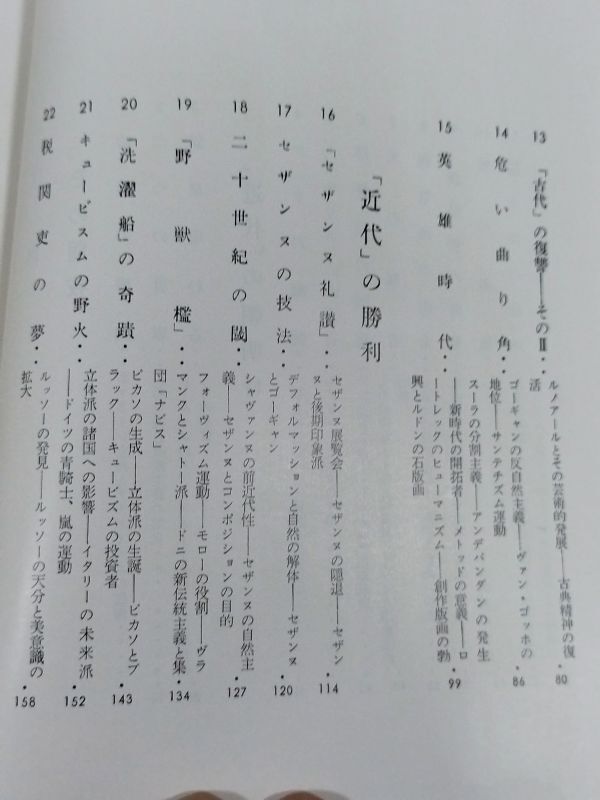 13 「古代」の復讐――そのⅡ・・
ルノアールとその芸術的発展――古典精神の復
活・80
14 危い曲り角・・
ゴーギャンの反自然主義――ヴァン・ゴッホの
地位――サンテチズム運動・86
15 英雄時代・・
スーラの分割主義――アンデパンダンの発生
――新時代の開拓者――メトッドの意義――ロ
ートレックのヒューマニズム――創作版画の勃
興とルドンの石版画・99
「近代」の勝利
16 「セザンヌ礼讃」・・
セザンヌ展覧会――セザンヌの隠退――セザン
ヌと後期印象派・114
17 セザンヌの技法・・
デフォルマッションと自然の解体――セザンヌ
とゴーギャン・120
18 二十世紀の閾・・
シャヴァンヌの前近代性――セザンヌの自然主
義――セザンヌとコンポジションの目的・127
19 「野獣檻」・・
フォーヴィズム運動――モローの役割――ヴラ
マンクとシャトー派――ドニの新伝統主義と集
団「ナビス」・134
20 「洗濯船」の奇蹟・・
ピカソの生成――立体派の生誕――ピカソとブ
ラック――キュービズムの投資者・143
21 キュービスムの野火・・
立体派の諸国への影響――イタリーの未来派
――ドイツの青騎士、嵐の運動・152
22 税関吏の夢・・
ルッソーの発見――ルッソーの天分と美意識の
拡大・158